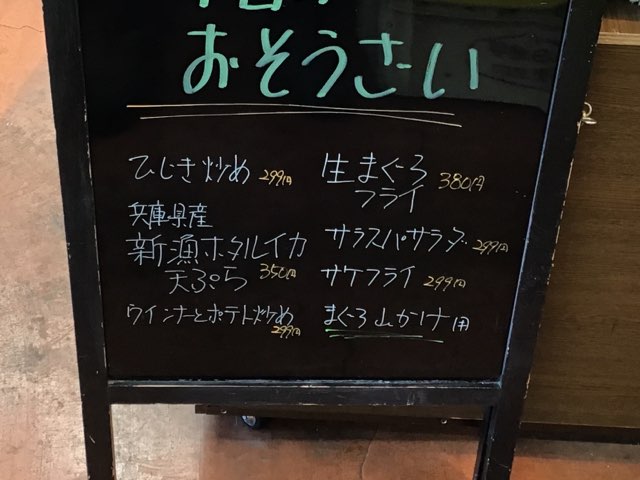 おそうさい
ひじき炒め 299円
兵庫県産
新漁ホタルイカ
天ぷら 350円
ウインナーとポテト炒め
299円
生まぐろ
フライ 380円
サラスパサラダ 299円
サケフライ 299円
まぐろ山かけ用